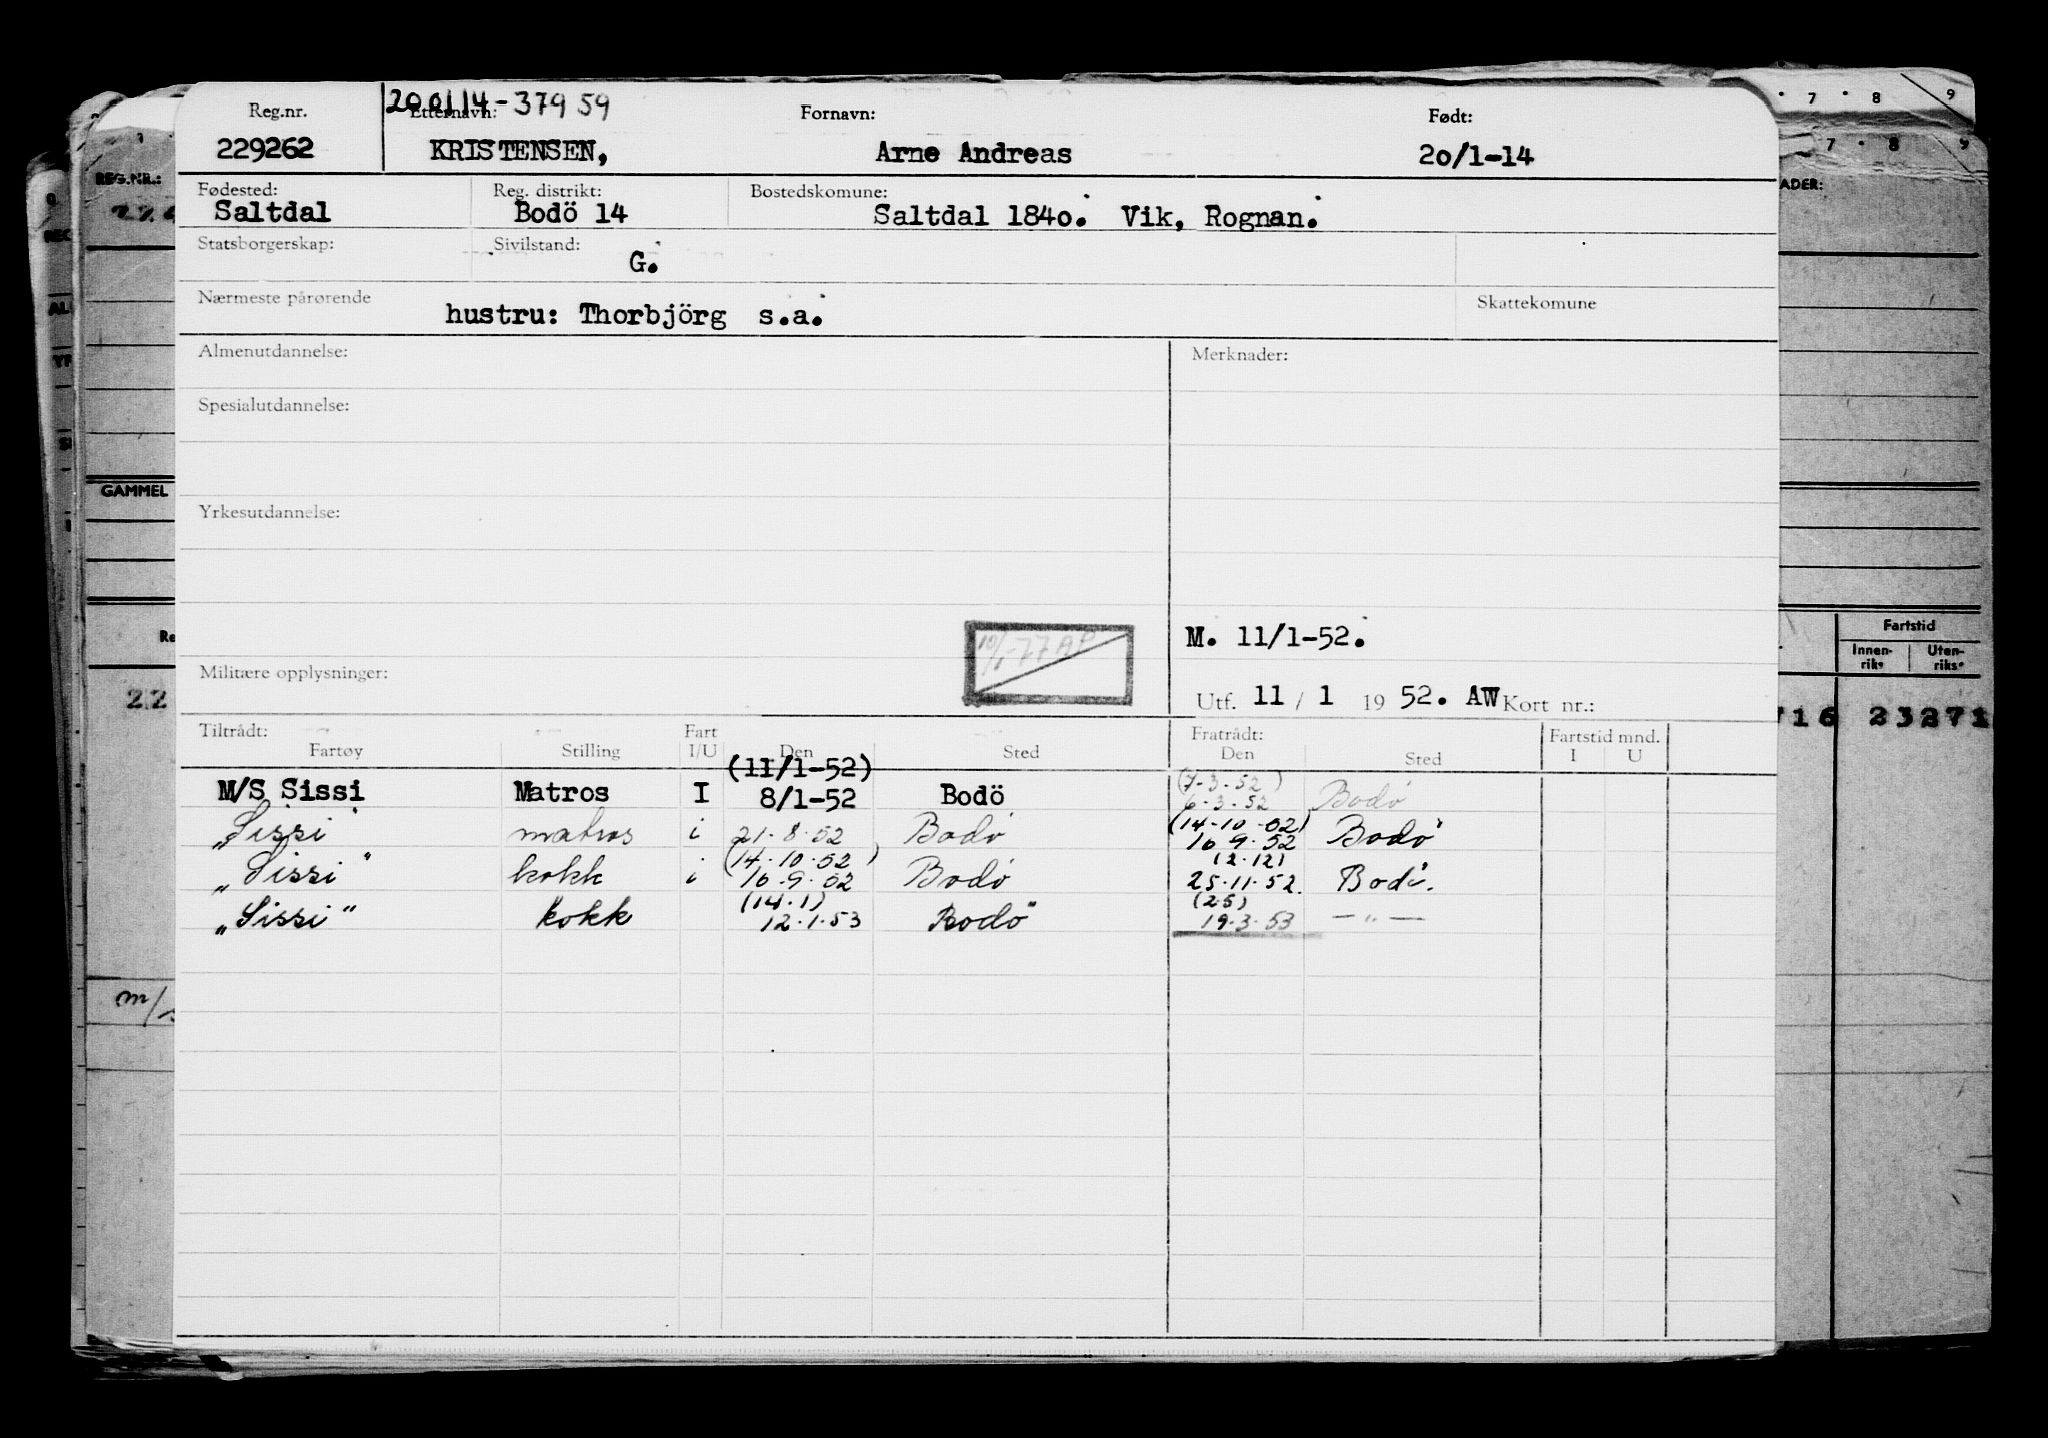 Reg.nr. 200114-37959 Etternavn: Fornavn: Født:
229262 KRISTENSEN, Arne Andreas 20/1-14
Fødested: Reg. distrikt: Bostedskomune:
Saltdal Bodö 14 Saltdal 1840. Vik, Rognan.
Statsborgerskap: Sivilstand:
G.
Nærmeste pårørende Skattekomune
hustru: Thorbjörg s.a.
Almenutdannelse: Merknader:
Spesialutdannelse:
Yrkesutdannelse:
10/1-77 AP
M. 11/1-52.
Militære opplysninger:
Utf. 11 / 1 19 52. AW Kort nr.:
Tiltrådt: Fart Fratrådt: Fartstid mnd.
Fartøy Stilling I/U Den Sted Den Sted I U
(11/1-52) (7-3-52)
M/S Sissi Matros I 8/1-52 Bodö 6-3-52 Bodó
(14-10-52)
"Sissi" matros i 21-8-52 Bodó 16 9-52 Bodó
(14-10-52) (2-12)
"Sissi" kokk i 16-9-52 Bodó 25-11-52. Bodó.
(14-1) (25)
"Sissi" kokk 12-1-53 Bodö 19-3-53 — " —
REG.NR.:
GAMMEL
22
m/s
7 8 9
7 8 9
Fartstid
Innen-riks Uten-riks
716 23271